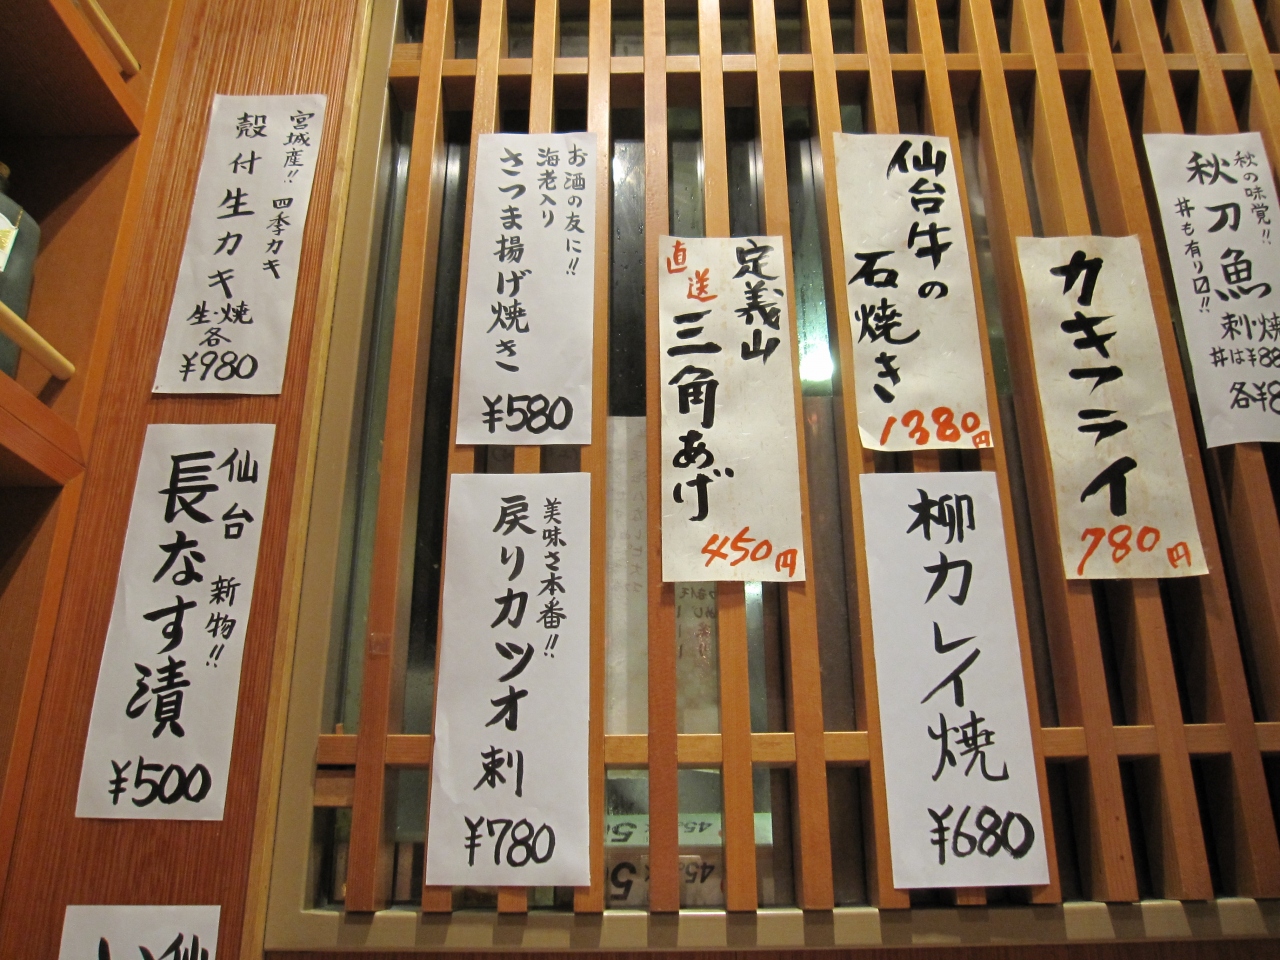 宮城産!! 四季カキ
殻付生カキ
生・焼
各
¥980
仙台 新物!!
長なす漬
¥500
お酒の友に!!
海老入り
さつま揚げ焼き
¥580
美味さ本番!!
戻りカツオ刺
¥780
定義山
直送
三角あげ
450円
仙台牛の
石焼き
1380円
柳カレイ焼
¥680
カキフライ
780円
秋の味覚!!
秋刀魚
丼も有り〼!!
刺・焼
丼は¥88
各¥8